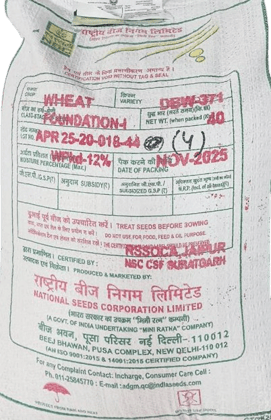 राष्ट्रीय बीज निगम लिमिटेड
CERTIFICATION VOID WITHOUT TAG & SEAL
CROP WHEAT VARIETY DBW-371
CLASS FOUNDATION-I NET WT. (when packed) KG. 40
LOT NO. APR 25-20-018-44 (4)
WPkd-12% NOV-2025
MOISTURE PERCENTAGE (Max.) DATE OF PACKING
अनुदान SUBSIDY(₹)
बुआई पूर्व बीज को उपचारित करें। TREAT SEEDS BEFORE SOWING
DO NOT USE FOR FOOD, FEED & OIL PURPOSE
द्वारा प्रमाणित। CERTIFIED BY : RSSOCA, JAIPUR
NSC CSF SURATGARH
उत्पादक एवं विक्रेता। PRODUCED & MARKETED BY:
राष्ट्रीय बीज निगम लिमिटेड
NATIONAL SEEDS CORPORATION LIMITED
(भारत सरकार का उपक्रम "मिनी रत्न" कम्पनी)
(A GOVT. OF INDIA UNDERTAKING "MINI RATNA" COMPANY)
बीज भवन, पूसा परिसर नई दिल्ली-110012
BEEJ BHAWAN, PUSA COMPLEX, NEW DELHI-110 012
(AN ISO 9001:2015 & 14001:2015 CERTIFIED COMPANY)
For any Complaint Contact: Incharge, Consumer Care Cell :
Ph. 011-25845770 : E-mail :